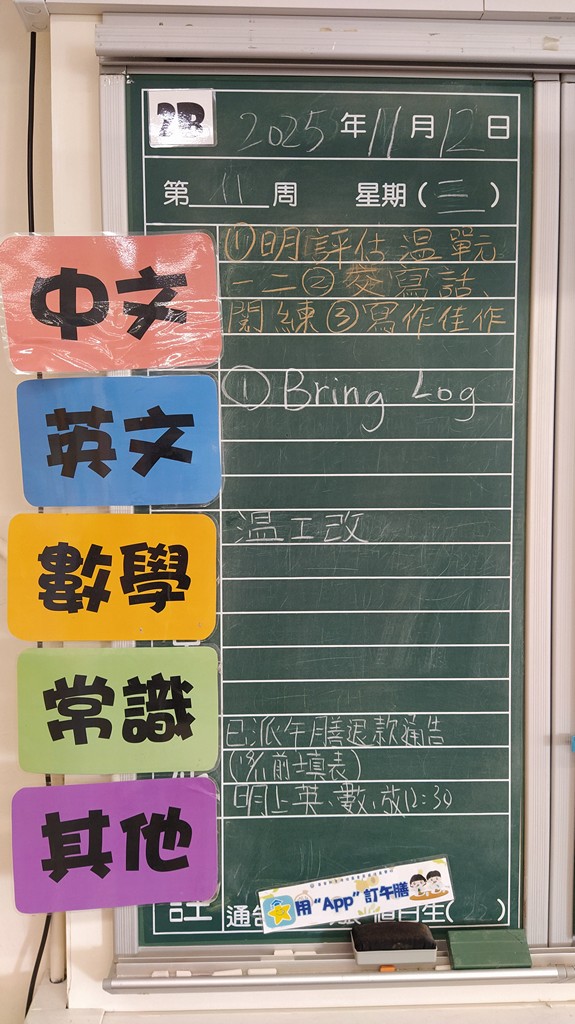 2B
2025年11月12日
第11周 星期(三)
中文
①明評估溫單元
一二②交寫話、
閱練③寫作佳作
英文
① Bring Log
數學
溫工改
常識
已派午膳退款通告
填表)
其他
明上英、數,放12:30
用“App”訂午膳
註
通告
值日生( )